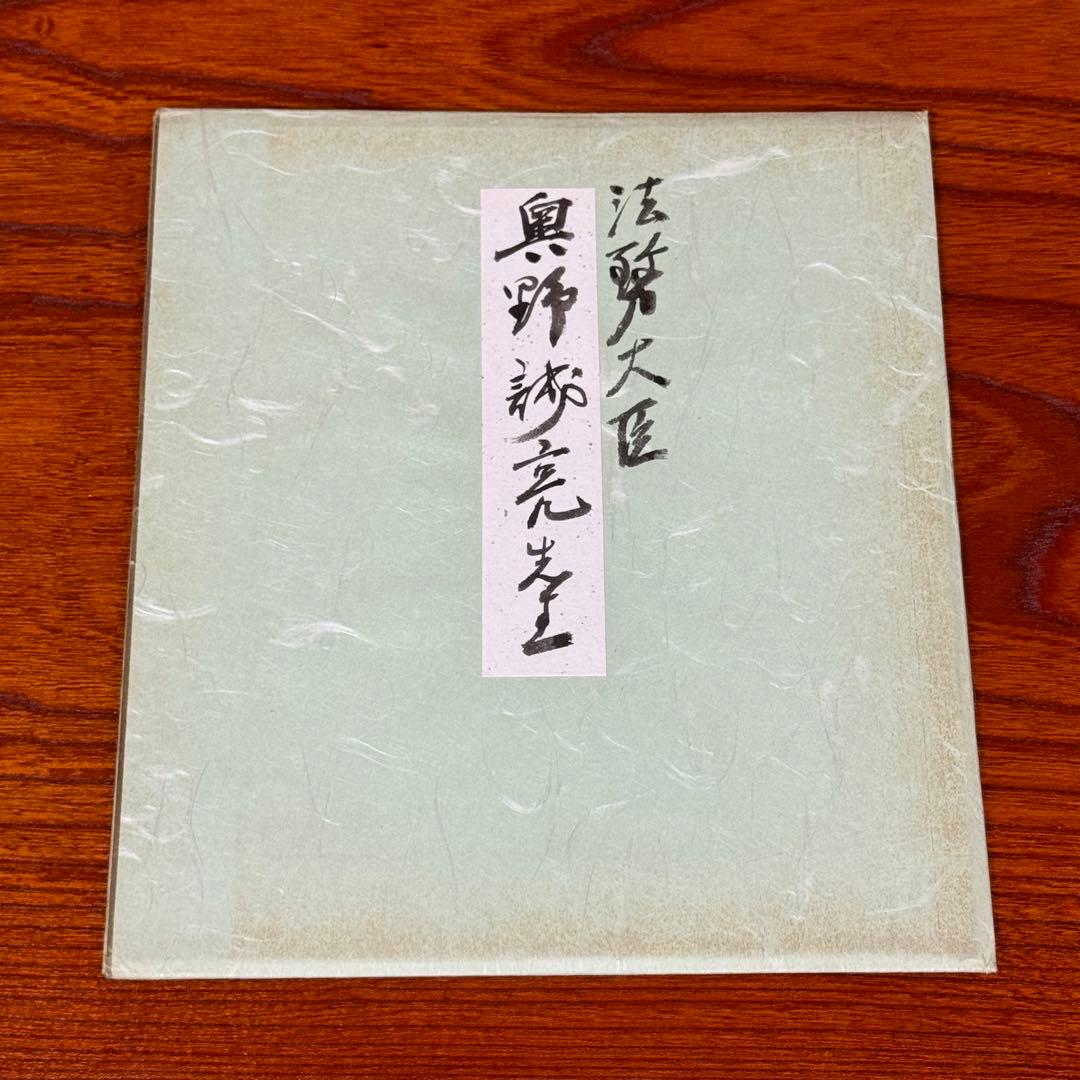 法務大臣
奥野誠亮先生